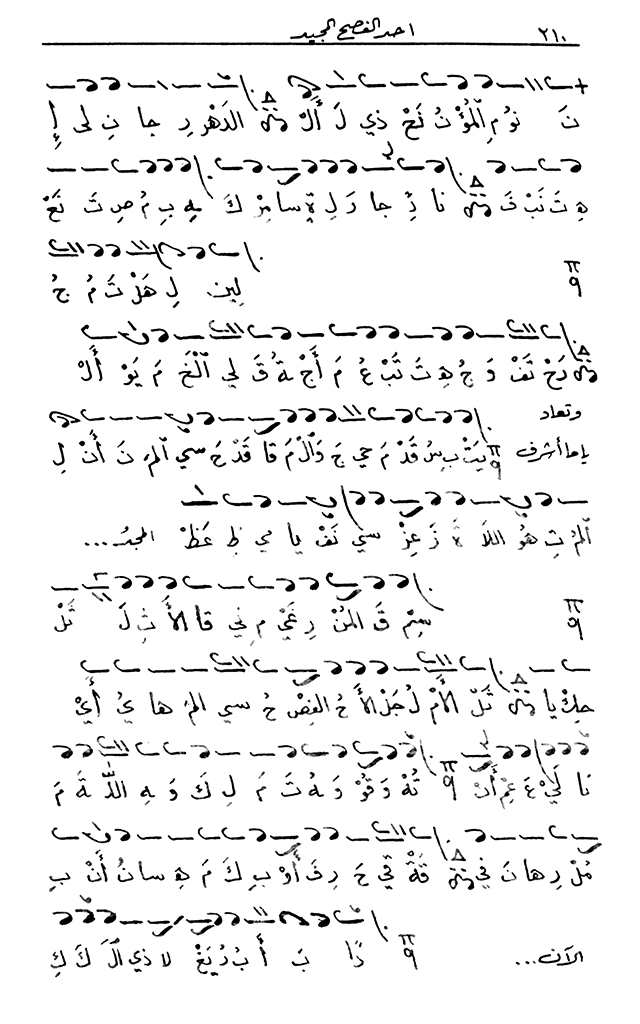 ٢١٠ احد الفصح المجيد
نَ نوُ مِ الْمُؤْ تُ نَحْ ذي لَ أَلْ الدَهْرِ رِ جا نِ لى إِ
هِ تَ نَبْ فَ نا ذِ جا رَ لِ ةٍ سا مِرْ كَ لِهِ بِ مُ صِ تَ نَعْ
لين لِ هَلْ تَ مُ جُ
دَخْ تَفْ وَ جُ هِ تَ تَبْ عُ مَ أَجْ ةُ قَ لي الْخَ مَ يَوْ أَلْ
وتعاد
ياما أشرف يَتْ بِ سُ قَدْ مَ حي جَ وَالْ مَ قا قَدْ حَ سي الم نَ أَنْ لِ
الْمُ تِ هُوَ اللاَ ةَ زَ عِزْ سي نَفْ يا مي ظِ عَظْ المجد...
سِمْ قَ المُنْ رِ غَيْ مِ ني قا الأَ ثِ لَ ثَلْ
حِكْ يا ثَلْ الأَمْ لُ جَلْ الأَ حُ الفِصْ حُ سي المَ ها يُ أَيْ
نا لَيْ عَ عِمْ أَنْ تُهْ وَ قُوْ وَ هُ تَ مَ لِ كَ وَ هِ اللَّ ةَ مَ
مُلْ رِ ها نَ في قَةْ قي حَ رِ فَ أَوْ بِ كَ مَ هِ سا نُ أَنْ بِ
الآن... ذًا بَ أَ بُ دُ يَغْ لا ذي الَّ كَ كِ